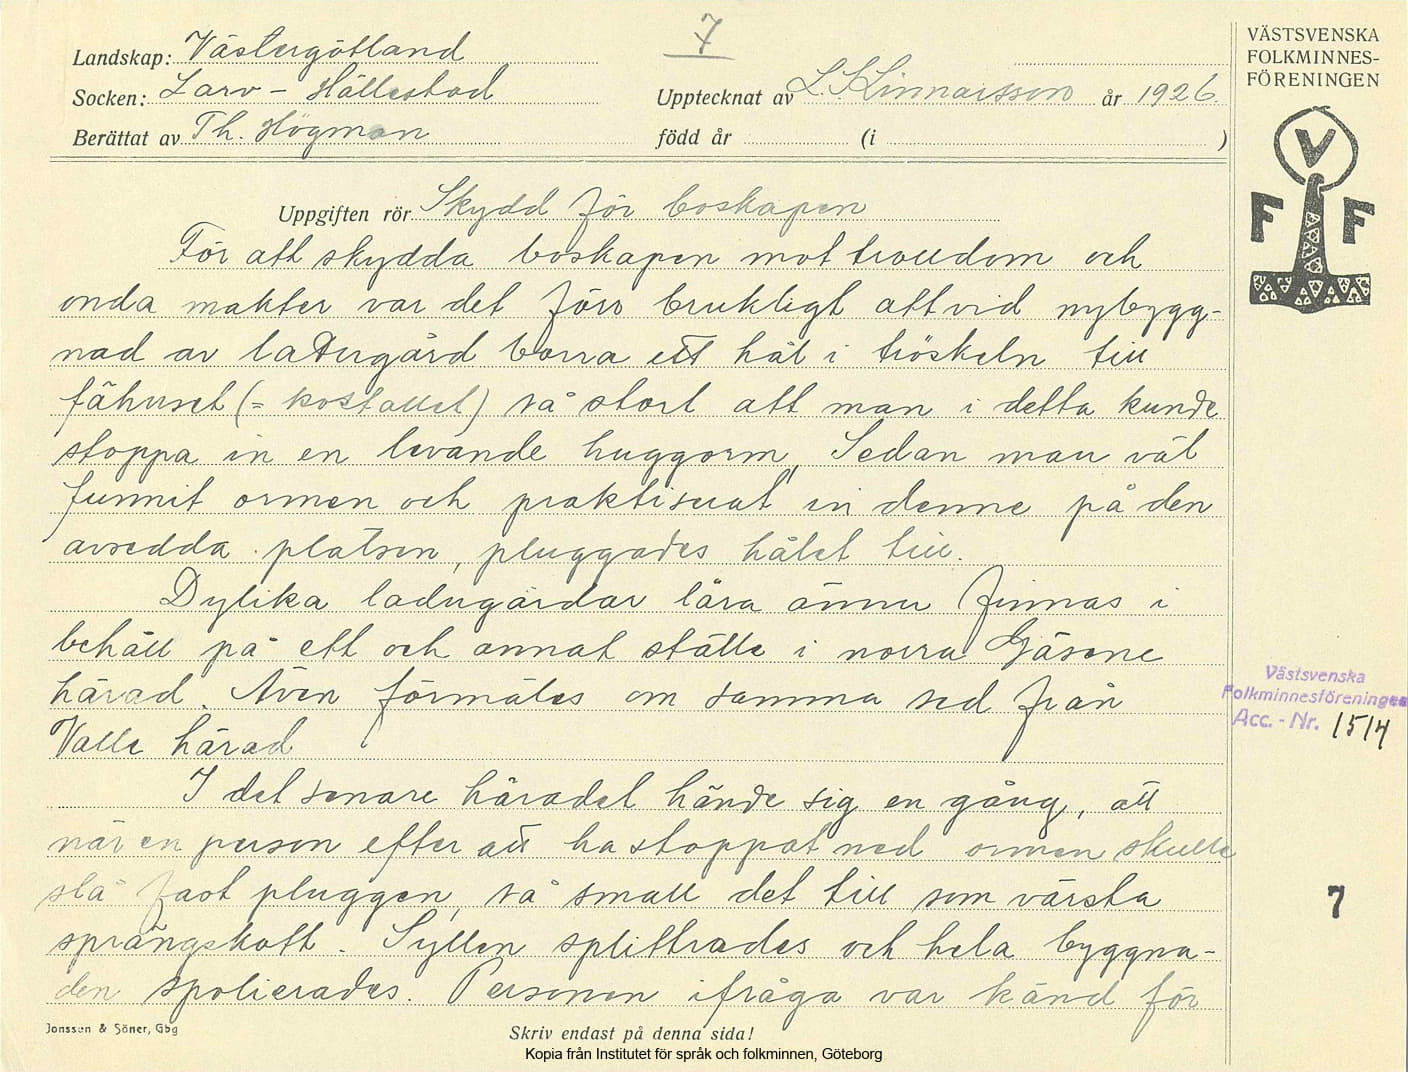 7
Landskap: Västergötland
Socken: Larv – Hällestad
Upptecknat av L. K. Linnarsson år 1926.
Berättat av Th. Högman född år (i )
VÄSTSVENSKA
FOLKMINNES-
FÖRENINGEN
V
F F
Uppgiften rör Skydd för boskapen
För att skydda boskapen mot trolldom och
onda makter var det förr brukligt att vid nybygg-
nad av ladugård borra ett hål i tröskeln till
fähuset (= kostallet) så stort att man i detta kunde
stoppa in en levande huggorm, Sedan man väl
funnit ormen och praktiserat in denne på den
avsedda platsen, pluggades hålet till.
Dylika ladugårdar lära ännu finnas i
behåll på ett och annat ställe i norra Gäsene
härad. Även förmäles om samma sed från
Valle härad
I det senare häradet hände sig en gång, att
när en person efter att ha stoppat ned ormen skulle
slå fast pluggen, så small det till som värsta
sprängskott. Syllen splittrades och hela byggna-
den spolierades. Personen ifråga var känd för
Västsvenska
Folkminnesföreningen
Acc. - Nr. 1514
7
Jonsson & Söner, Gbg
Skriv endast på denna sida!
Kopia från Institutet för språk och folkminnen, Göteborg